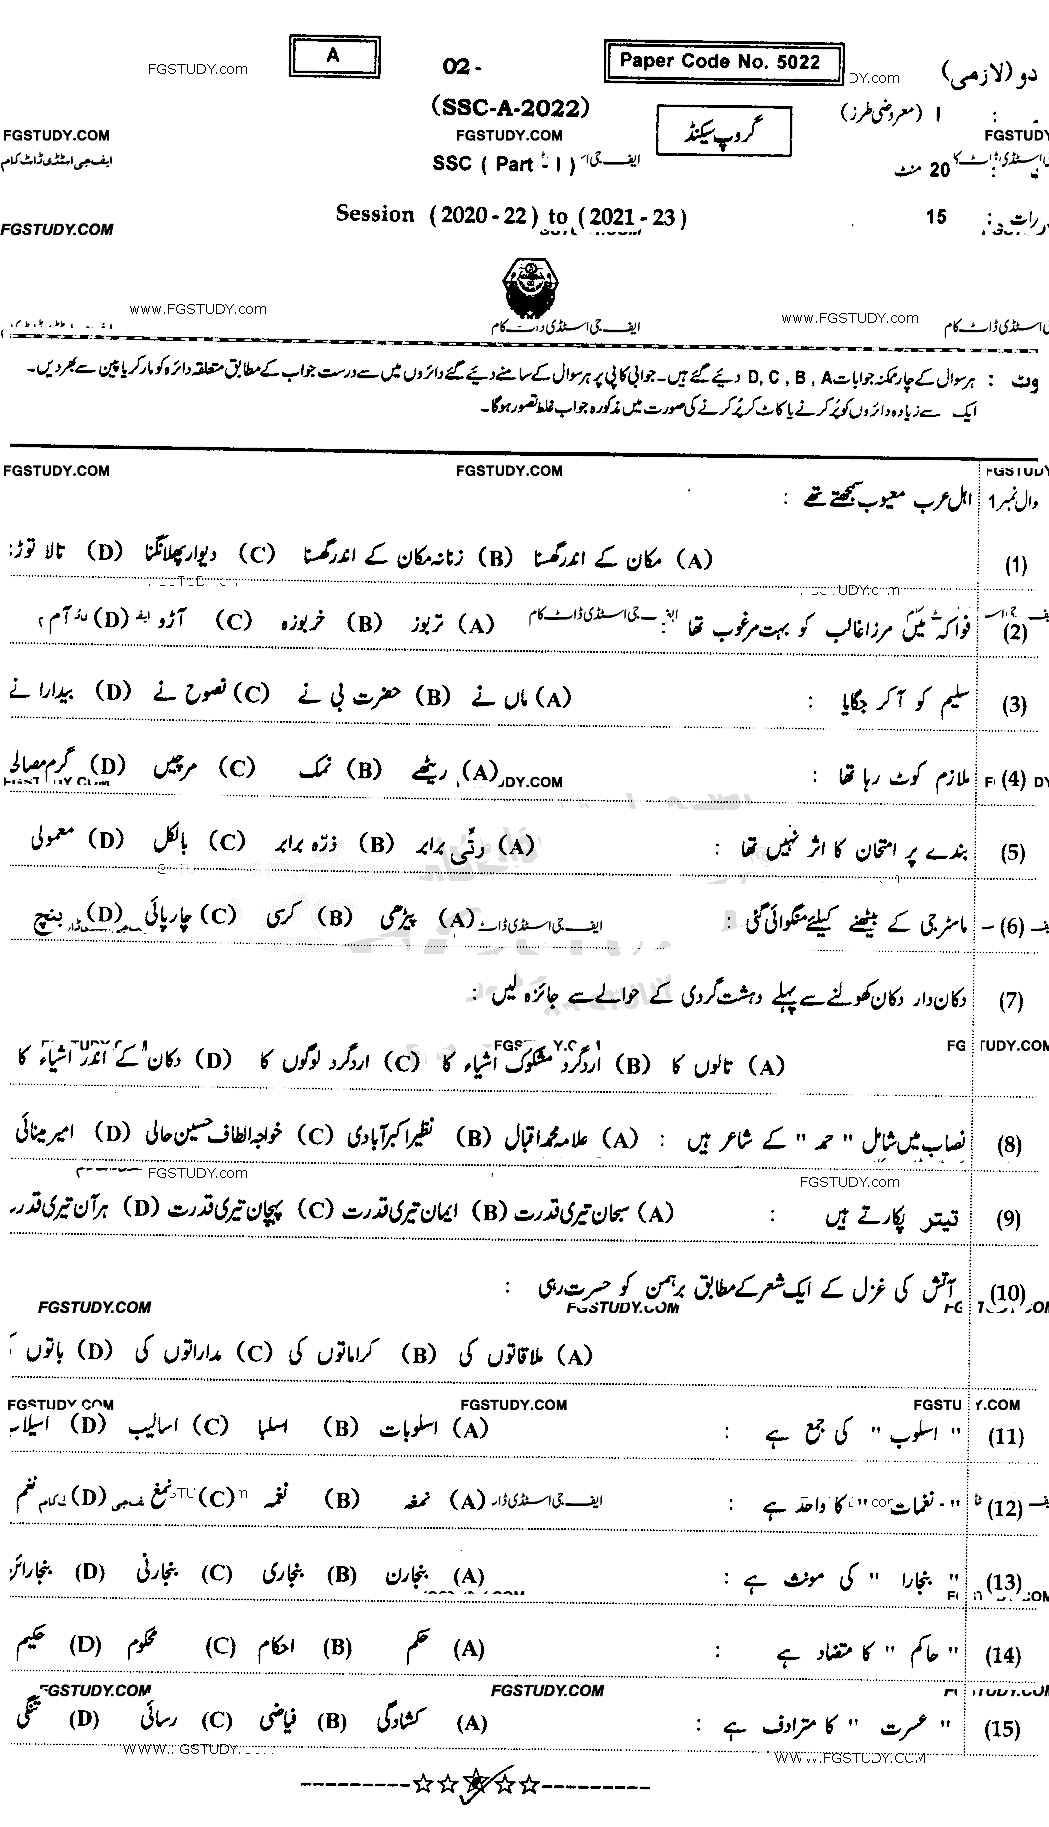 FGSTUDY.com
A
02 -
Paper Code No. 5022
DY.com
دو (لازمی)
(SSC-A-2022)
گروپ سیکنڈ
I (معروضی طرز) :
FGSTUDY.COM
FGSTUDY.COM
FGSTUDY
ایف جی اسٹڈی ڈاٹ کام
SSC ( Part - I )
20 منٹ
FGSTUDY.COM
Session ( 2020 - 22 ) to ( 2021 - 23 )
15 :
www.FGSTUDY.com
www.FGSTUDY.com
ایف جی اسٹڈی ڈاٹ کام
وٹ : ہر سوال کے چار ممکنہ جوابات A , B , C , D دیئے گئے ہیں۔ جوابی کاپی پر ہر سوال کے سامنے دیئے گئے دائروں میں سے درست جواب کے مطابق متعلقہ دائرہ کو مارکر یا پین سے بھر دیں۔
ایک سے زیادہ دائروں کو پُر کرنے یا کاٹ کر پُر کرنے کی صورت میں مذکورہ جواب غلط تصور ہوگا۔
FGSTUDY.COM
FGSTUDY.COM
FGSTUDY
وال نمبر 1 اہل عرب معیوب سمجھتے تھے :
(1) (A) مکان کے اندر گھسنا (B) زنانہ مکان کے اندر گھسنا (C) دیوار پھلانگنا (D) تالا توڑ
(2) فواکہ میں مرزا غالب کو بہت مرغوب تھا : (A) تربوز (B) خربوزہ (C) آڑو (D) آم
(3) سلیم کو آ کر جگایا : (A) ماں نے (B) حضرت بی نے (C) نصوح نے (D) بیدارا نے
(4) ملازم کوٹ رہا تھا : (A) ریٹھے (B) نمک (C) مرچیں (D) گرم مصالحے
(5) بندے پر امتحان کا اثر نہیں تھا : (A) رتّی برابر (B) ذرّہ برابر (C) بالکل (D) معمولی
(6) ماسٹر جی کے بیٹھنے کیلئے منگوائی گئی : (A) پیڑھی (B) کرسی (C) چارپائی (D) بنچ
(7) دکان دار دکان کھولنے سے پہلے دہشت گردی کے حوالے سے جائزہ لیں :
(A) تالوں کا (B) اردگرد مشکوک اشیاء کا (C) اردگرد لوگوں کا (D) دکان کے اندر اشیاء کا
(8) نصاب میں شامل " حمد " کے شاعر ہیں : (A) علامہ محمد اقبال (B) نظیر اکبر آبادی (C) خواجہ الطاف حسین حالی (D) امیر مینائی
FGSTUDY.com
FGSTUDY.com
(9) تیتر پکارتے ہیں : (A) سبحان تیری قدرت (B) ایمان تیری قدرت (C) پہچان تیری قدرت (D) ہر آن تیری قدر
(10) آتش کی غزل کے ایک شعر کے مطابق برہمن کو حسرت رہی :
FGSTUDY.COM
FGSTUDY.COM
(A) ملاقاتوں کی (B) کراماتوں کی (C) مداراتوں کی (D) باتوں
FGSTUDY.COM
FGSTUDY.COM
(11) " اسلوب " کی جمع ہے : (A) اسلوبات (B) اسلبا (C) اسالیب (D)
(12) " نغمات " کا واحد ہے : (A) نمغہ (B) نغمہ (C) نمغ (D) نغم
(13) " بنجارا " کی مونث ہے : (A) بنجارن (B) بنجاری (C) بنجارنی (D) بنجارائن
(14) " حاکم " کا متضاد ہے : (A) حکم (B) احکام (C) محکوم (D) حکیم
FGSTUDY.COM
FGSTUDY.COM
(15) " عسرت " کا مترادف ہے : (A) کشادگی (B) فیاضی (C) رسائی (D) تنگی
WWW.FGSTUDY.COM